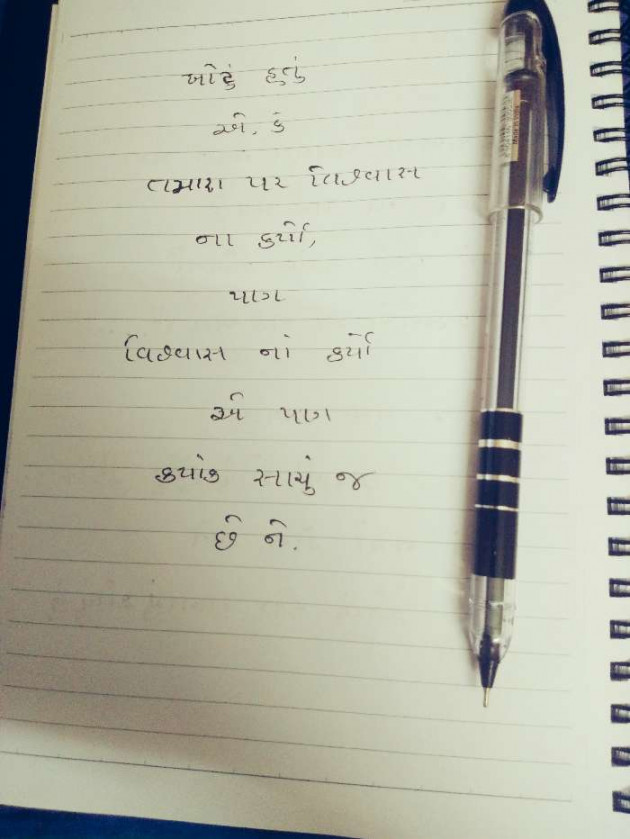 ખોટું હતું
એ. કે
તમારા પર વિશ્વાસ
ના કર્યો,
પાગ
વિશ્વાસ નાં કર્યો
એ પાગ
ક્યાંક સાચું જ
છે ને.